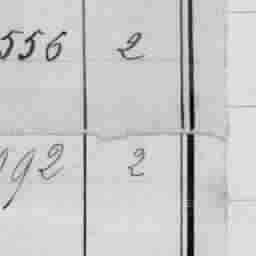 556 2
992 2